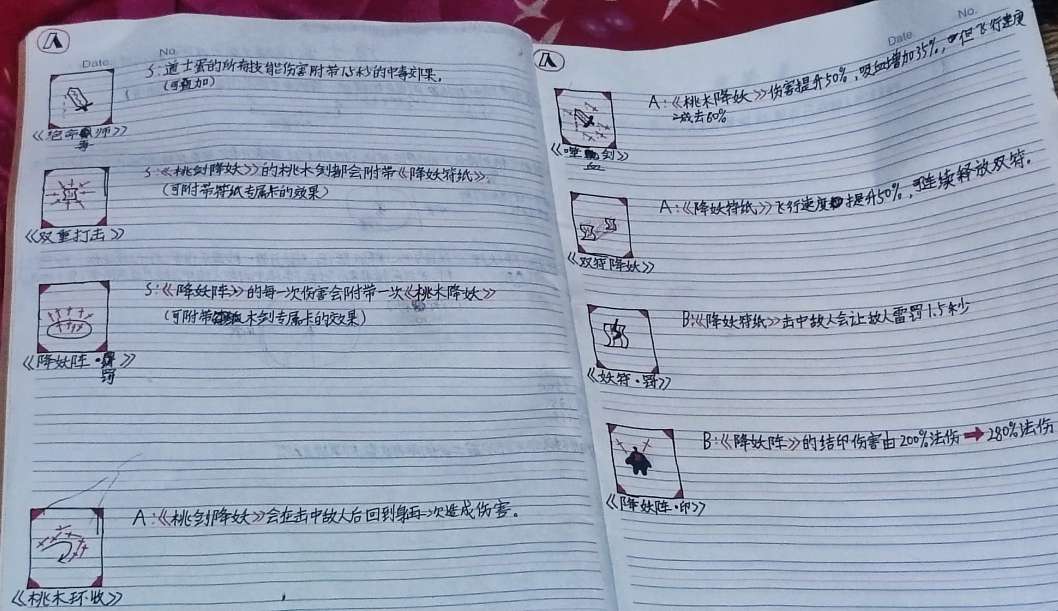 No.
Date
S:道士蛋的所有技能伤害附带1.5秒的中毒效果,
(可叠加)
《绝命师》
毒
S:《桃剑降妖》的桃木剑都会附带《降妖符纸》.
(可附带符纸专属卡的效果)
《双重打击》
S:《降妖阵》的每一次伤害会附带一次《桃木降妖》
(可附带木剑专属卡的效果)
《降妖阵·》
罚
A:《桃剑降妖》会在击中敌人后回到身再二次造成伤害。
《桃木环收》
No.
Date
A:《桃木降妖》伤害提升50%,吸血增加35%,但飞行速度
减去60%
《噬剑》
血
A:《降妖符纸》飞行速度提升50%,可连续释放双符.
《双符降妖》
B:《降妖符纸》击中敌人会让敌人雷罚1.5秒
《妖符·罚》
B:《降妖阵》的结印伤害由200%法伤➡280%法伤
《降妖阵·印》